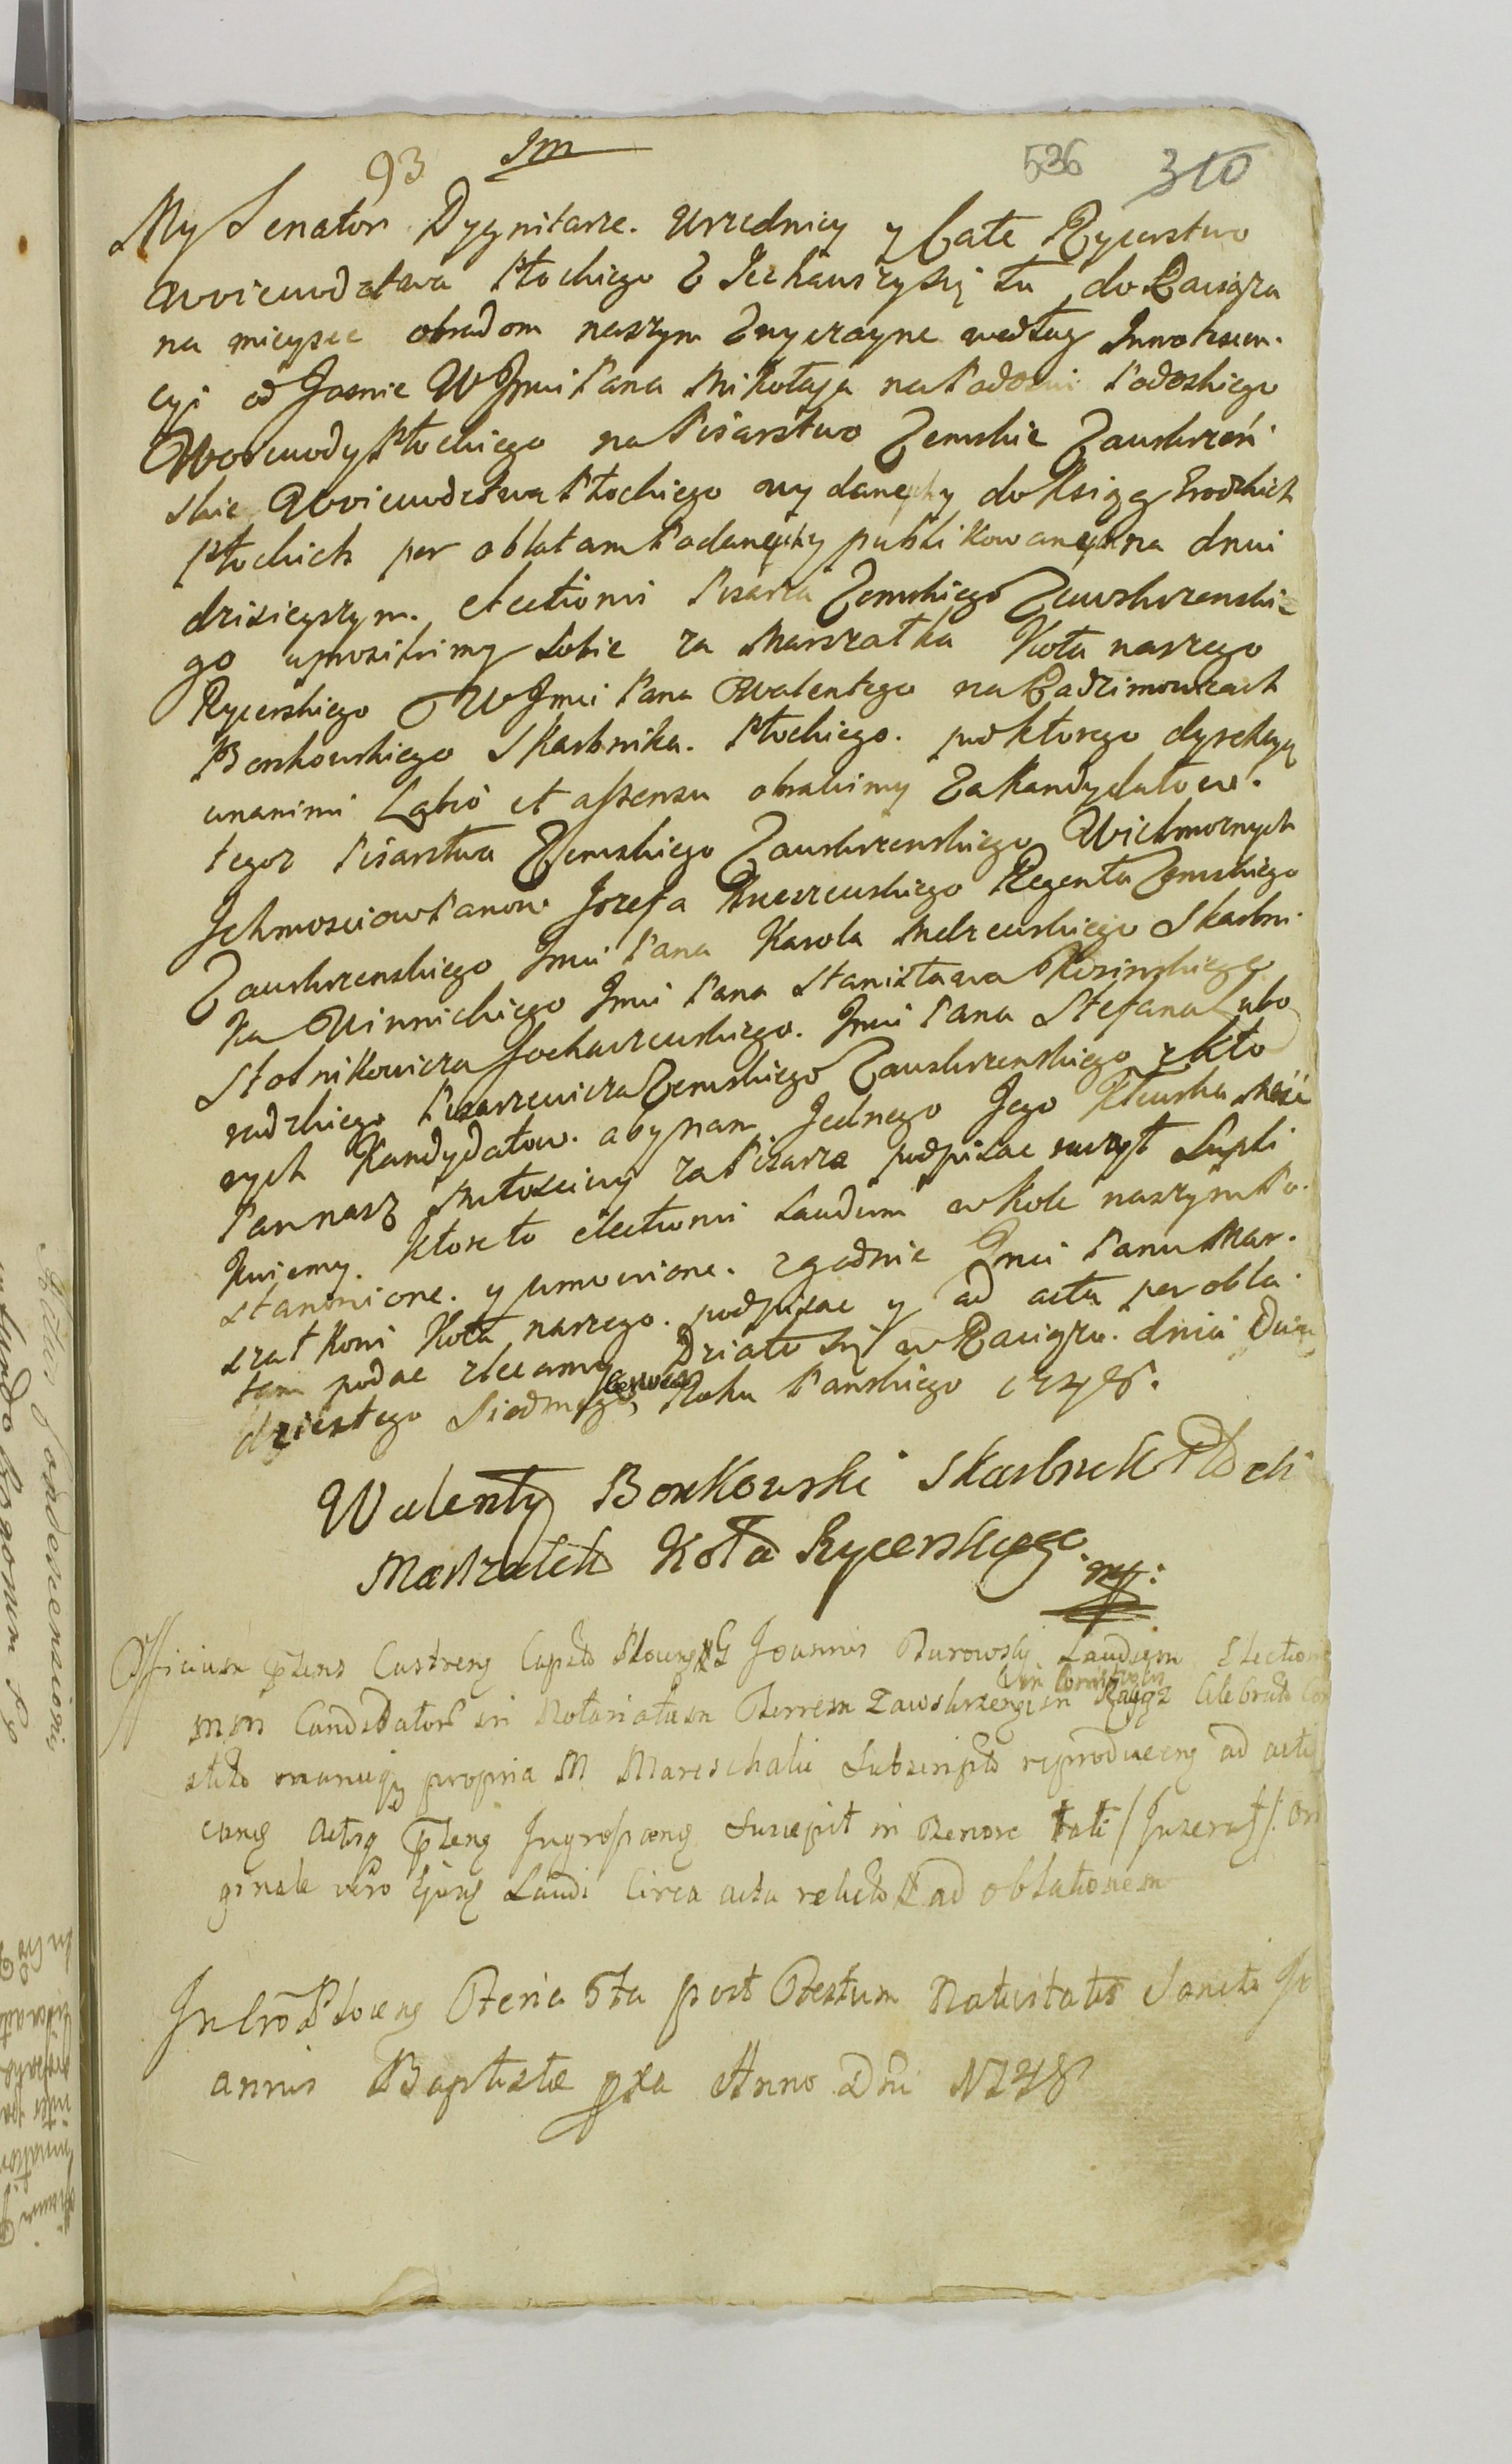 93 Im 536 310
My Senator Dygnitarze. Urzednicy y Całe Rycerstwo
Woiewodztwa Płockiego Ziechawszysię tu do Raciąża
na mieysce obradom naszym Zwyczayne według Innotescen.
cyi od Jasnie W Jmci Pana Mikołaja na Podosiu Podoskiego
Woiewody Płockiego na Pisarstwo Zemskie Zawkrzeń
skie Woiewodztwa Płockiego wydaney do Ksiąg Grodzkich
Płockich per oblatam Podaney publikowaney na dniu
dzisieyszym. electionis Pisarza Zemskiego Zawskrzenskie
go uprosilismy Sobie za Marszałka Koła naszego
Rycerskiego W Jmci Pana Walentego na Radzimowicach
Borkowskiego Skarbnika. Płockiego. pod ktorego dyrekcyą
unanimi et assensu obralismy Za Kandydatow.
tegoz Pisarstwa Zemskiego Zawskrzenskiego Wielmoznych
Ichmosciow Panow Jozefa Regenta Zemskiego
Zawskrzenskiego Jmci Pana Karola Mdzewskiego Skarbni
ka Winnickiego Jmci Pana Stanisława Kosinskiego
Stolnikowicza Sochaczewskiego. Jmci Pana Stefana Lubo
radzkiego Pisarzewicza Zemskiego Zawskrzenskiego z kto
rych Kandydatow. aby nam Jednego Jego Krlewska Mość
Pan nasz Miłosciwy za Pisarza podpisac raczył Supli
kuiemy. Ktore to electionis Laudum w Kole naszym Po.
stanowione. y umowione. zgodnie Jmci Panu Mar.
szałkowi Koła naszego. podpisac y ad acta per obla.
tam podac zlecamy Działo się w Raciążu. dnia Dwu
dziestego Siodmego Czerwca Roku Panskiego 1748.
Walenty Borkowski Skarbnik Płocki
Marszałek Koła Rycerskiego
mp:
Officium Castren Capitl Plocen G Joannis Burowski Laudum Election
in Comitiolis
mm Candidator in Notariatum Terrem Zawskrzen in Raciąż Celebrat
manuq propria M Mareschali Subscript reproducen ad acta
Suscepit in Tenore tali
ginale vero Ejus Laudi Circa acta relict ad oblationem
In Cro Plocen Feria 5ta post Festum Nativitatis Sancti Jo
annis Baptistæ pxa Anno Dni 1748